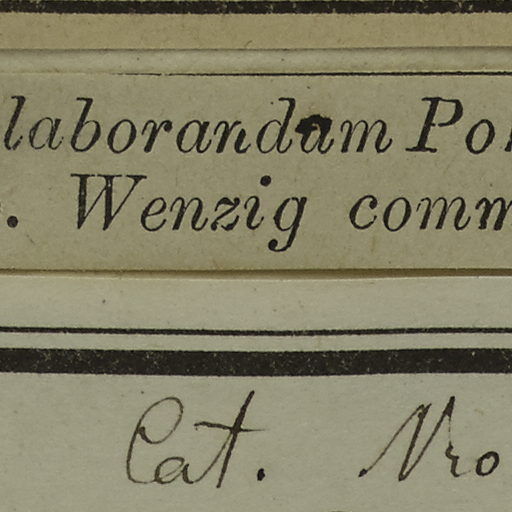 laborandam Po
. Wenzig comm
Cat. Nro